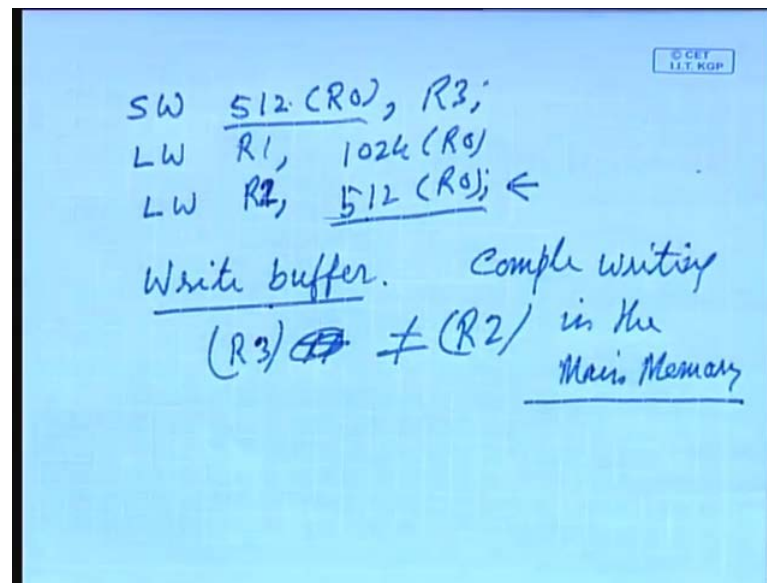 © CET
I.I.T. KGP
SW 512 (R0), R3;
LW R1, 1024 (R0)
LW R2, 512 (R0); ←
Write buffer. Comple writing
(R3) ≠ (R2) in the
Main Memory